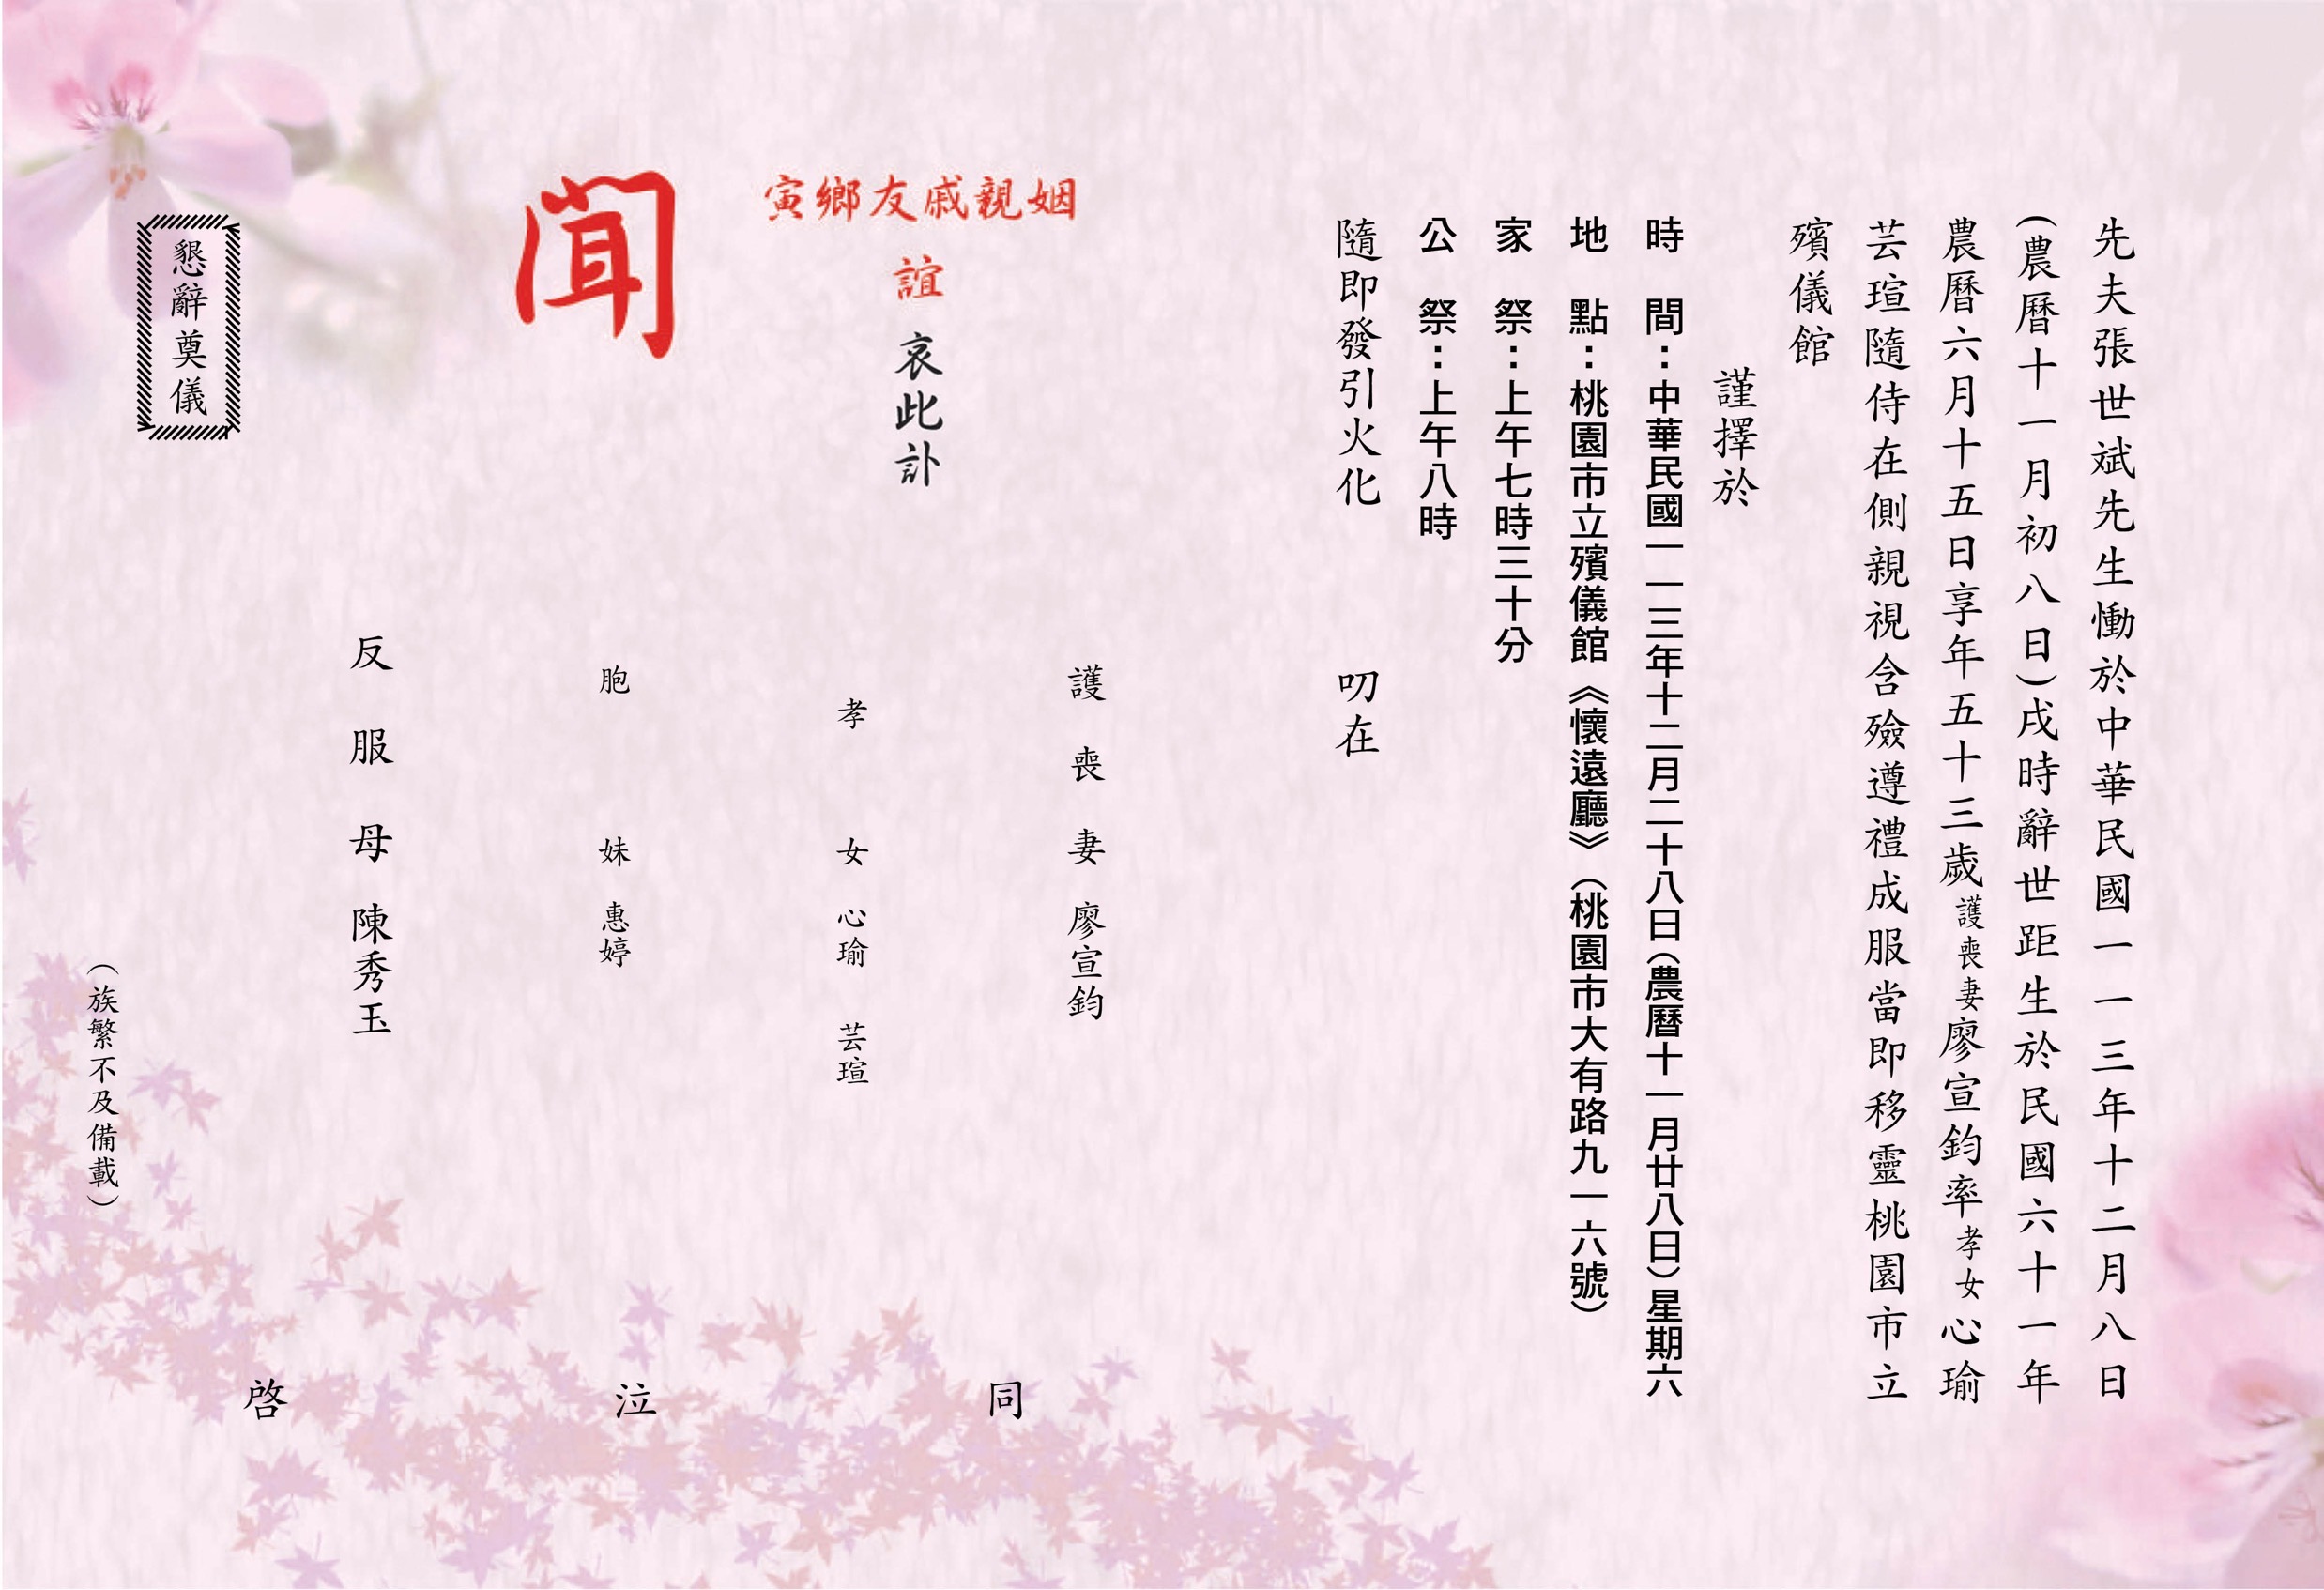 先夫張世斌先生慟於中華民國一一三年十二月八日
(農曆十一月初八日)戌時辭世距生於民國六十一年
農曆六月十五日享年五十三歲護喪妻廖宣鈞率孝女心瑜
芸瑄隨侍在側親視含殮遵禮成服當即移靈桃園市立
殯儀館
謹擇於
時 間：中華民國一一三年十二月二十八日(農曆十一月廿八日)星期六
地 點：桃園市立殯儀館《懷遠廳》(桃園市大有路九一六號)
家 祭：上午七時三十分
公 祭：上午八時
隨即發引火化 叨在
姻親戚友鄉寅
誼 哀此訃
聞
護喪妻 廖宣鈞
孝女 心瑜 芸瑄
胞妹 惠婷
反服母 陳秀玉
同泣啓
(族繁不及備載)
懇辭奠儀